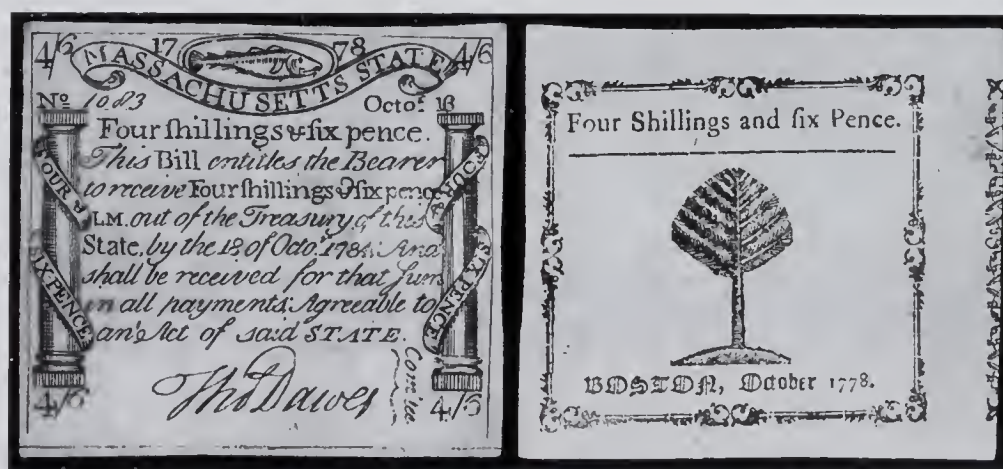 4/6 17 78 4/6
MASSACHUSETTS STATE
No 1083 Octor. 18
Four ſhillings & ſix pence.
This Bill entitles the Bearer
to receive Four ſhillings & ſix pence
LM. out of the Treasury of this
State, by the 18 of Octor. 1784; And
shall be received for that Sum
in all payments; Agreeable to
an Act of said STATE.
FOUR &
SIX PENCE
FOUR &
SIX PENCE
Tho Dawes
Com'tee
4/6 4/6
Four Shillings and ſix Pence.
BOSTON, October 1778.